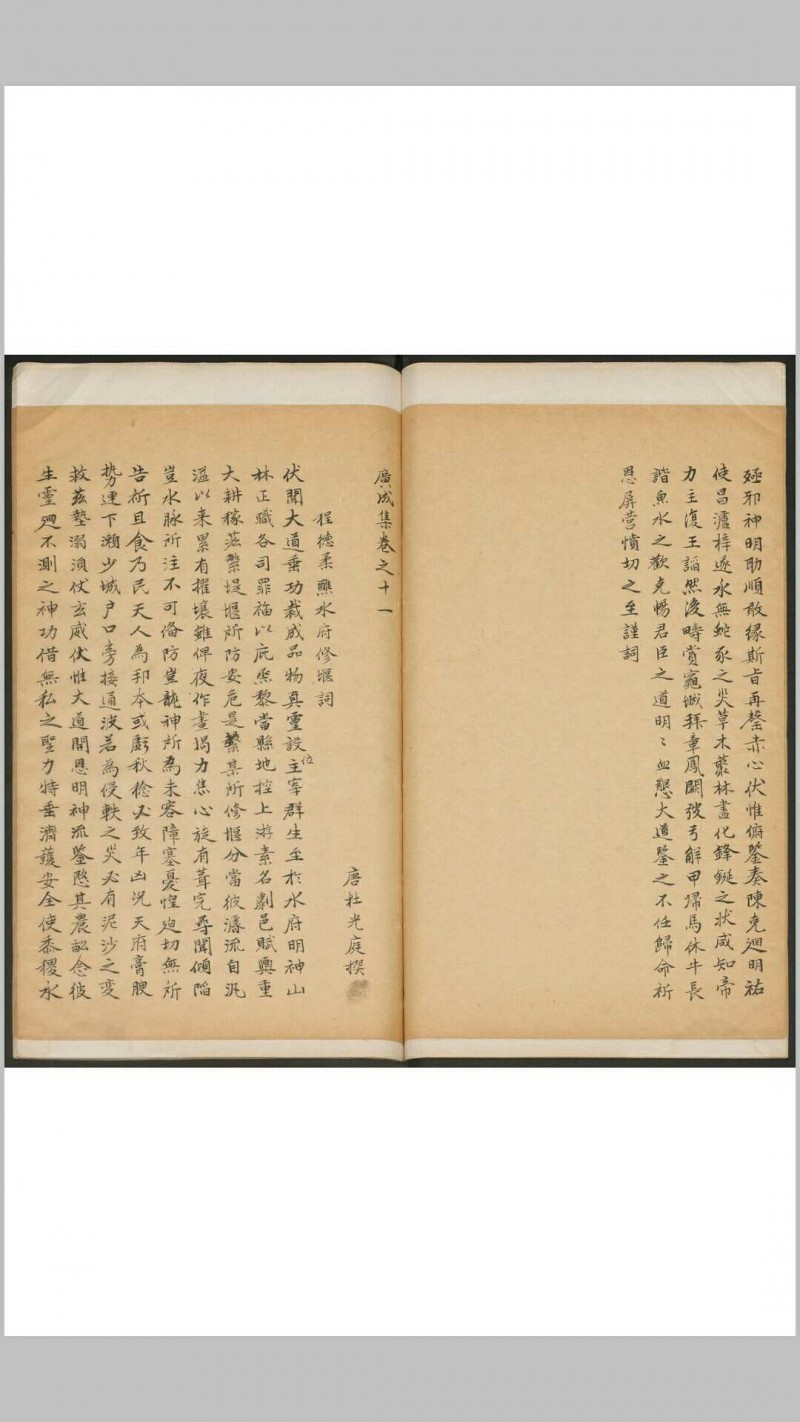 殛邪神明助順敢縁斯旨再罄赤心伏惟俯鑒奏陳克廻明祐
使昌瀘梓遂永無蛇豕之災草木叢林盡化鋒鋋之状咸知帝
力主復王謡然後時賞寵城拜章鳳闕弢弓解甲歸馬休牛長
諧魚水之歡克暢君臣之道明〻血懇大道鑒之不任歸命祈
恩屏營憤切之至謹詞
廣成集卷之十一
唐杜光庭撰
程德柔醮水府修堰詞
伏聞大道垂功裁成品物真靈設位主宰群生至於水府明神山
林正職各司罪福以庇烝黎當縣地控上游素名劇邑賦輿重
大耕稼茲繁堤堰所防安危是繫某所修堰分當彼濤流自汎
溢以来累有摧壞雖俾夜作晝竭力焦心旋有葺完尋聞傾陷
豈水脉所注不可俻防豈龍神所為未容障塞憂惶迫切無所
告祈且食乃民天人為邦本或虧秋稔必致年凶况天府膏腴
勢連下瀨少城户口旁接通波若為侵軼之災必有泥沙之变
救茲墊溺湏仗玄威伏惟大道開恩明神流鑒愍其農畝念彼
生靈廻不測之神功借無私之聖力特垂濟護安全使黍稷水